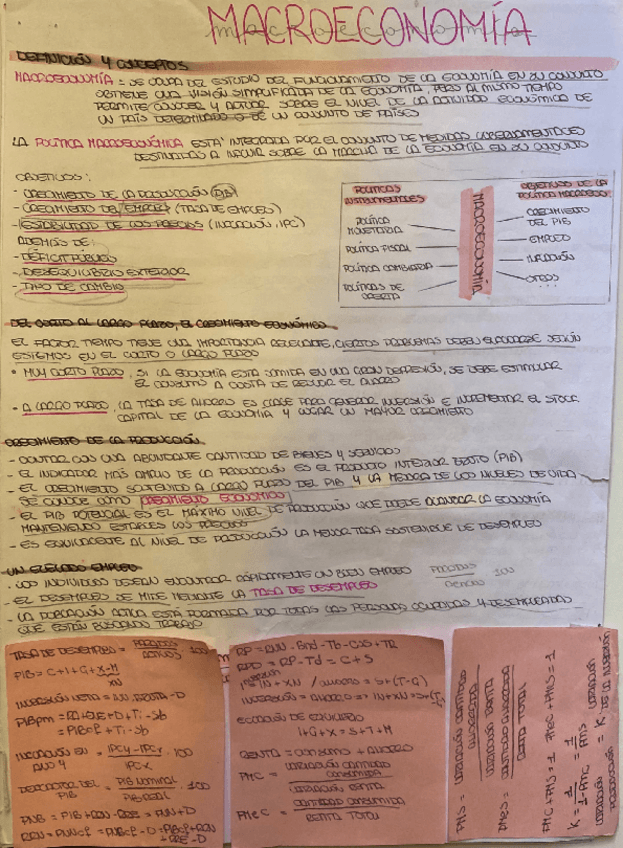 MACROECONOMÍA
macroeconomía
DEFINICIÓN Y CONCEPTOS
MACROECONOMÍA = SE OCUPA DEL ESTUDIO DEL FUNCIONAMIENTO DE LA ECONOMÍA EN SU CONJUNTO
OBTIENE UNA VISIÓN SIMPLIFICADA DE LA ECONOMÍA, PERO AL MISMO TIEMPO
PERMITE CONOCER Y ACTUAR SOBRE EL NIVEL DE LA ACTIVIDAD ECONÓMICA DE
UN PAÍS DETERMINADO O DE UN CONJUNTO DE PAÍSES
LA POLÍTICA MACROECONÓMICA ESTÁ INTEGRADA POR EL CONJUNTO DE MEDIDAS GUBERNAMENTALES
DESTINADAS A INFLUIR SOBRE LA MARCHA DE LA ECONOMÍA EN SU CONJUNTO
OBJETIVOS:
- CRECIMIENTO DE LA PRODUCCIÓN (PIB)
- CRECIMIENTO DEL EMPLEO (TASA DE EMPLEO)
- ESTABILIDAD DE LOS PRECIOS (INFLACIÓN, IPC)
ADEMÁS DE:
- DÉFICIT PÚBLICO
- DESEQUILIBRIO EXTERIOR
- TIPO DE CAMBIO
POLÍTICAS
INSTRUMENTALES
POLÍTICA
MONETARIA
POLÍTICA FISCAL
POLÍTICA CAMBIARIA
POLÍTICAS DE
OFERTA
MACROECONOMÍA
OBJETIVOS DE LA
POLÍTICA MACROECO
CRECIMIENTO
DEL PIB
EMPLEO
INFLACIÓN
OTROS
...
DEL CORTO AL LARGO PLAZO, EL CRECIMIENTO ECONÓMICO
EL FACTOR TIEMPO TIENE UNA IMPORTANCIA RELEVANTE, CIERTOS PROBLEMAS DEBEN ELABORARSE SEGÚN
ESTEMOS EN EL CORTO O LARGO PLAZO
• MUY CORTO PLAZO, SI LA ECONOMÍA ESTÁ SUMIDA EN UNA GRAN DEPRESIÓN, SE DEBE ESTIMULAR
EL CONSUMO A COSTA DE REDUCIR EL AHORRO
• A LARGO PLAZO, LA TASA DE AHORRO ES CLAVE PARA GENERAR INVERSIÓN E INCREMENTAR EL STOCK
CAPITAL DE LA ECONOMÍA Y LOGRAR UN MAYOR CRECIMIENTO
CRECIMIENTO DE LA PRODUCCIÓN
- CONTAR CON UNA ABUNDANTE CANTIDAD DE BIENES Y SERVICIOS
- EL INDICADOR MÁS AMPLIO DE LA PRODUCCIÓN ES EL PRODUCTO INTERIOR BRUTO (PIB)
- EL CRECIMIENTO SOSTENIDO A LARGO PLAZO DEL PIB Y LA MEJORA DE LOS NIVELES DE VIDA
SE CONOCE COMO CRECIMIENTO ECONÓMICO
- EL PIB POTENCIAL ES EL MÁXIMO NIVEL DE PRODUCCIÓN QUE PUEDE ALCANZAR LA ECONOMÍA
MANTENIENDO ESTABLES LOS PRECIOS
- ES EQUIVALENTE AL NIVEL DE PRODUCCIÓN LA MENOR TASA SOSTENIBLE DE DESEMPLEO
UN ELEVADO EMPLEO
- LOS INDIVIDUOS DESEAN ENCONTRAR RÁPIDAMENTE UN BUEN EMPLEO
- EL DESEMPLEO SE MIDE MEDIANTE LA TASA DE DESEMPLEO
100
- LA POBLACIÓN ACTIVA ESTÁ FORMADA POR TODAS LAS PERSONAS OCUPADAS Y DESEMPLEADAS
QUE ESTÁN BUSCANDO TRABAJO
TASA DE DESEMPLEO = PARADOS / ACTIVOS 100
PIB = C+I+G+X-M
XN
INVERSIÓN NETA = INV. BRUTA - D
PIBpm = RA+EBE+D+Ti-Sb
= PIBcf + Ti-Sb
INFLACIÓN EN AÑO Y = IPCY - IPCX / IPCX · 100
DEFLACTOR DEL PIB = PIB NOMINAL / PIB REAL · 100
PNB = PIB + RRN - RRE = PNN + D
RNN = PNNcf = PNBcf - D = PIBcf + RRN
- RRE - D
RP = RNN - Bnd - Tb - CSS + TR
RPD = RP - Td = C + S
INVERSIÓN
I = IN + XN / AHORRO = S+(T-G)
INVERSIÓN = AHORRO => IN+XN = S+(T-
ECUACIÓN DE EQUILIBRIO
I+G+X = S+T+M
RENTA = CONSUMO + AHORRO
PMC = VARIACIÓN CANTIDAD CONSUMIDA / VARIACIÓN RENTA
PMeC = CANTIDAD CONSUMIDA / RENTA TOTAL
PMS = VARIACIÓN CANTIDAD AHORRADA / VARIACIÓN RENTA
PMeS = CANTIDAD AHORRADA / RENTA TOTAL
PMC + PMS = 1 PMeC + PMeS = 1
K = 1 / 1-PMC = 1 / PMS
VARIACIÓN PRODUCCIÓN = K · VARIACIÓN DE LA INVERSIÓN